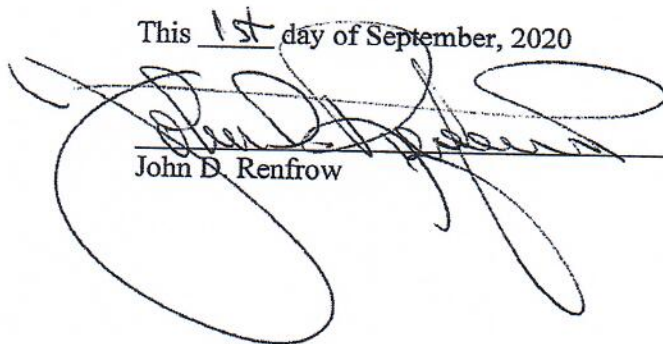 This 1st day of September, 2020
John D. Renfrow